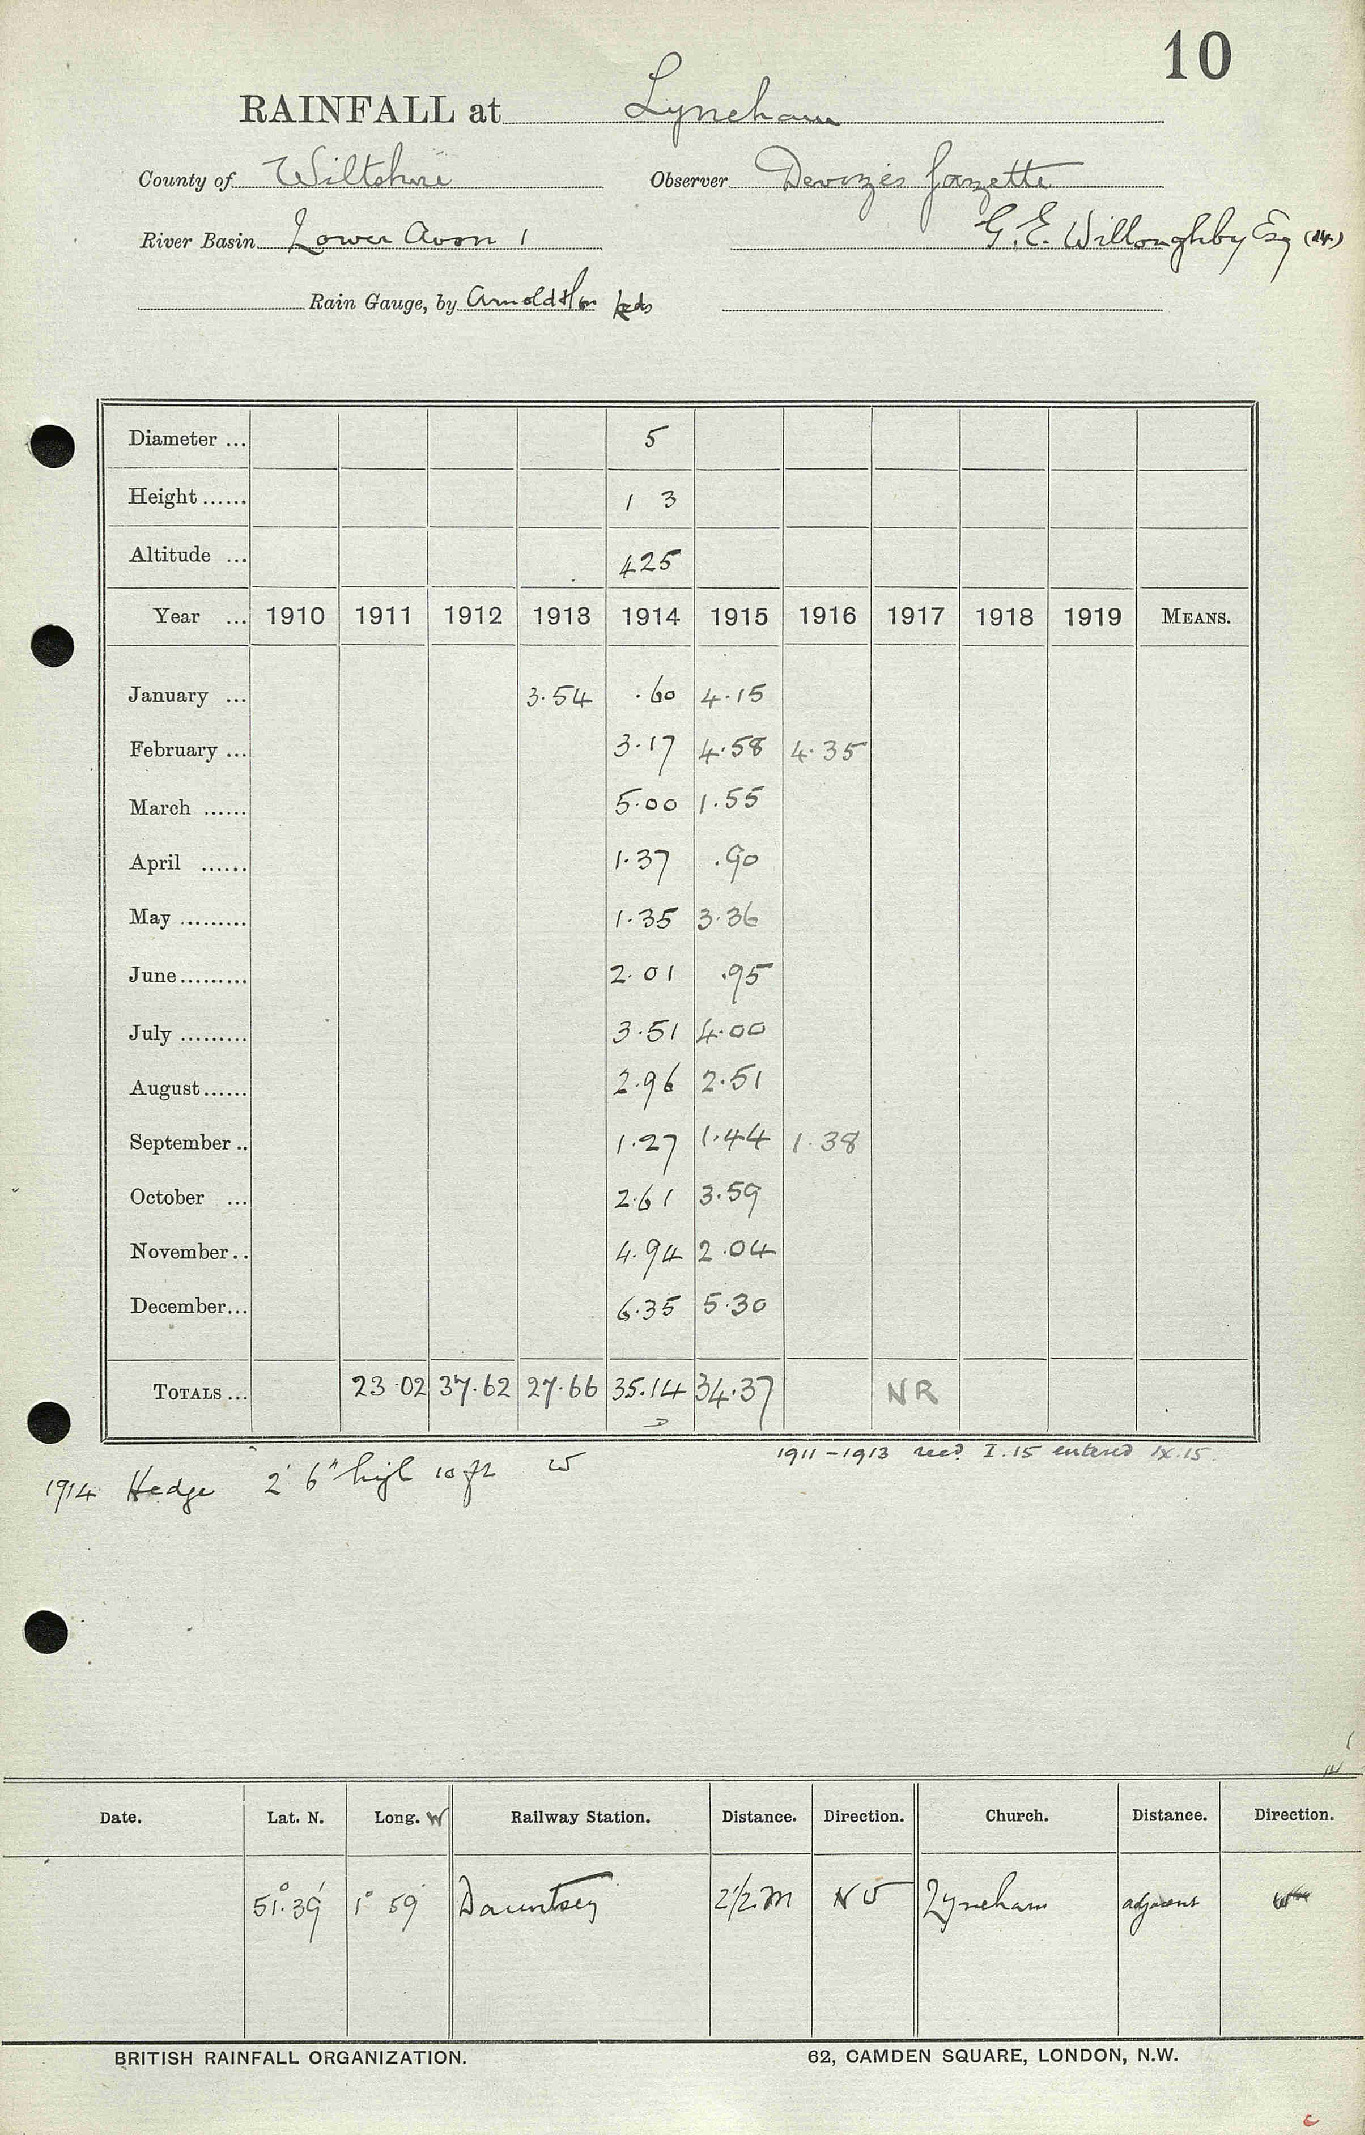 10
RAINFALL at Lyneham
County of Wiltshire Observer Devizes Gazette
River Basin Lower Avon 1 G. E. Willoughby Esq (14)
Rain Gauge, by Arnold & Son
Diameter ... 5
Height ...... 1 3
Altitude ... 425
Year ... 1910 1911 1912 1913 1914 1915 1916 1917 1918 1919 MEANS.
January ... 3.54 .60 4.15
February ... 3.17 4.58 4.35
March ...... 5.00 1.55
April ...... 1.37 .90
May ......... 1.35 3.36
June ......... 2.01 .95
July ......... 3.51 4.00
August ...... 2.96 2.51
September .. 1.27 1.44 1.38
October ... 2.61 3.59
November .. 4.94 2.04
December ... 6.35 5.30
TOTALS ... 23.02 37.62 27.66 35.14 34.37 NR
1911-1913 recd. I.15 entered IX.15.
1914 Hedge 2' 6" high 10 ft W
Date. Lat. N. Long. W Railway Station. Distance. Direction. Church. Distance. Direction.
51° 39' 1° 59' Dauntsey 2 1/2 M NW Lyneham adjacent
BRITISH RAINFALL ORGANIZATION. 62, CAMDEN SQUARE, LONDON, N.W.
c